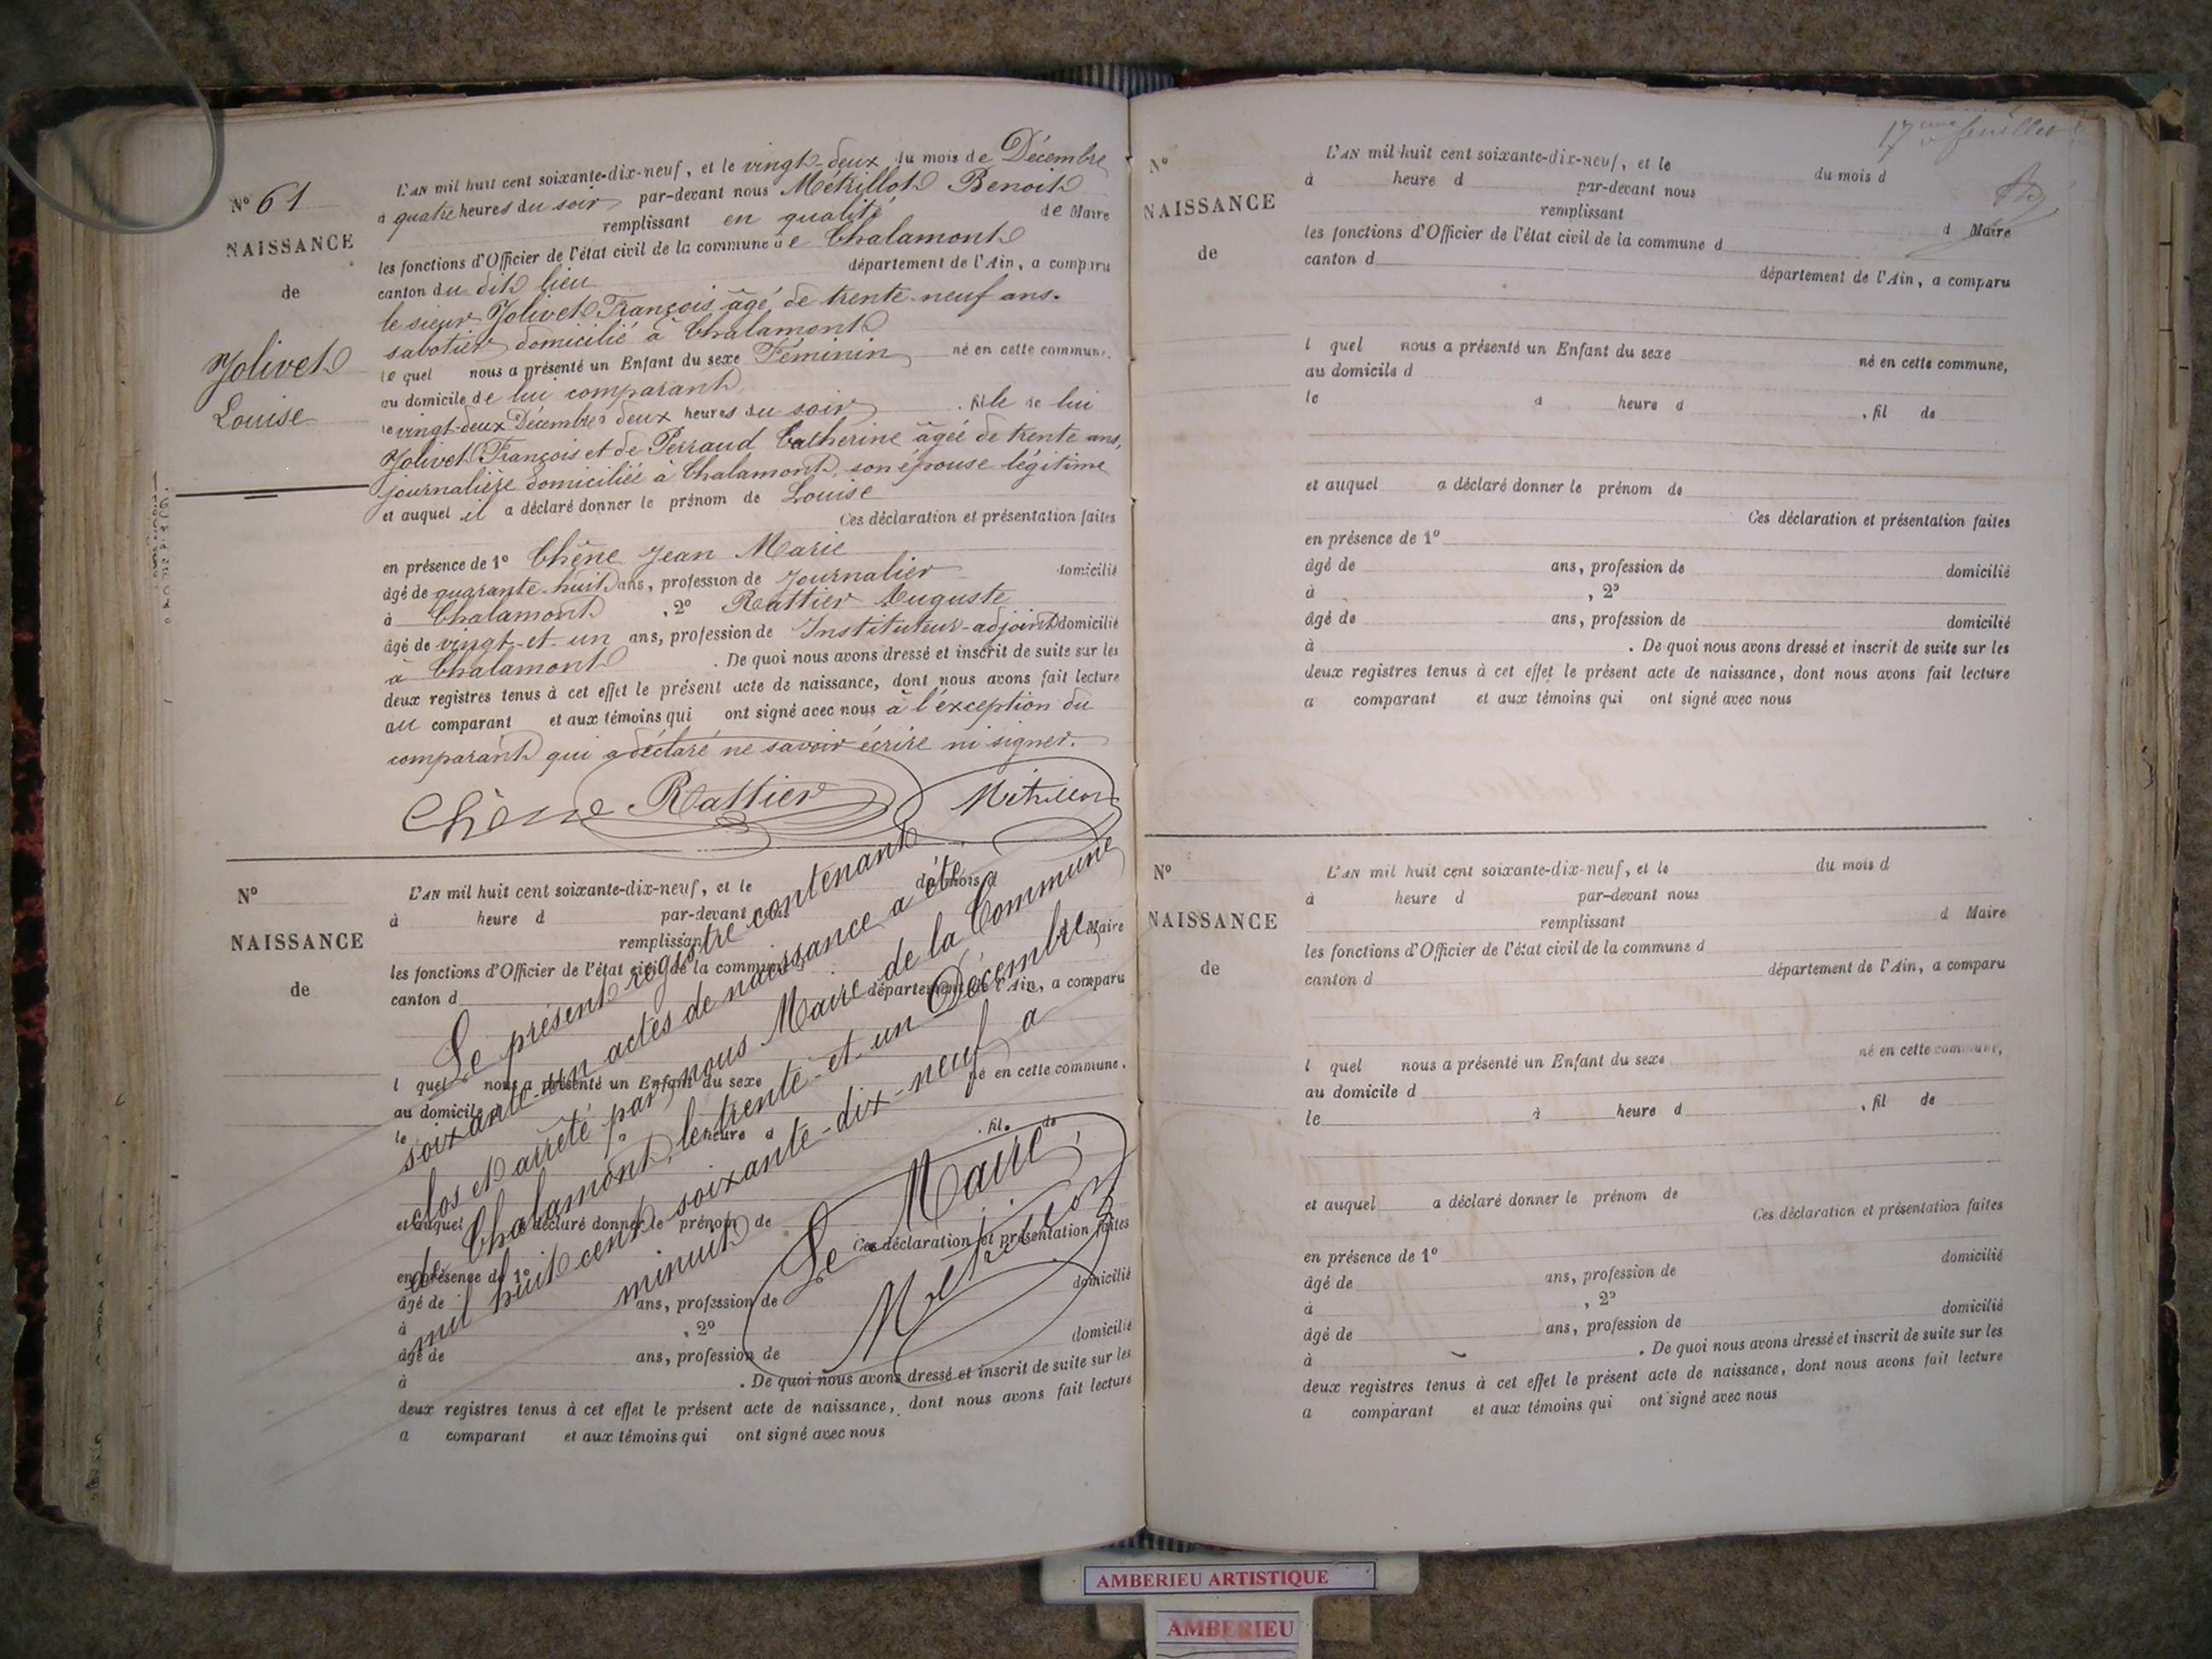 N° 61
NAISSANCE
de
Jolivet
Louise
L'AN mil huit cent soixante-dix-neuf, et le vingt-deux du mois de Décembre
à quatre heures du soir par-devant nous Métrillot Benoit
remplissant en qualité de Maire
les fonctions d'Officier de l'état civil de la commune de Chalamont
canton du dit lieu département de l'Ain, a comparu
le sieur Jolivet François âgé de trente-neuf ans.
sabotier domicilié à Chalamont
le quel nous a présenté un Enfant du sexe Féminin né en cette commune,
au domicile de lui comparant
le vingt-deux Décembre à deux heures du soir, fille de lui
Jolivet François et de Perraud Catherine âgée de trente ans,
journalière domiciliée à Chalamont, son épouse légitime
et auquel il a déclaré donner le prénom de Louise
Ces déclaration et présentation faites
en présence de 1° Chêne Jean Marie
âgé de quarante-huit ans, profession de Journalier domicilié
à Chalamont, 2° Rattier Auguste
âgé de vingt-et-un ans, profession de Instituteur-adjoint domicilié
à Chalamont. De quoi nous avons dressé et inscrit de suite sur les
deux registres tenus à cet effet le présent acte de naissance, dont nous avons fait lecture
au comparant et aux témoins qui ont signé avec nous à l'exception du
comparant qui a déclaré ne savoir écrire ni signer.
Chêne Rattier Métrillot
N°
NAISSANCE
de
L'AN mil huit cent soixante-dix-neuf, et le du mois d
à heure d par-devant nous
remplissant d Maire
les fonctions d'Officier de l'état civil de la commune d
canton d département de l'Ain, a comparu
l quel nous a présenté un Enfant du sexe né en cette commune,
au domicile d
le à heure d , fil de
et auquel a déclaré donner le prénom de
Ces déclaration et présentation faites
en présence de 1° domicilié
âgé de ans, profession de
à , 2° domicilié
âgé de ans, profession de
à . De quoi nous avons dressé et inscrit de suite sur les
deux registres tenus à cet effet le présent acte de naissance, dont nous avons fait lecture
a comparant et aux témoins qui ont signé avec nous
Le présent registre contenant
soixante-un actes de naissance a été
clos et arrêté par nous Maire de la Commune
de Chalamont, le trente-et-un Décembre
mil huit cent soixante-dix-neuf à
minuit
Le Maire,
Métrillot
17me feuillet
N°
NAISSANCE
de
L'AN mil huit cent soixante-dix-neuf, et le du mois d
à heure d par-devant nous
remplissant d Maire
les fonctions d'Officier de l'état civil de la commune d
canton d département de l'Ain, a comparu
l quel nous a présenté un Enfant du sexe né en cette commune,
au domicile d
le à heure d , fil de
et auquel a déclaré donner le prénom de
Ces déclaration et présentation faites
en présence de 1°
âgé de ans, profession de domicilié
à , 2°
âgé de ans, profession de domicilié
à . De quoi nous avons dressé et inscrit de suite sur les
deux registres tenus à cet effet le présent acte de naissance, dont nous avons fait lecture
a comparant et aux témoins qui ont signé avec nous
N°
NAISSANCE
de
L'AN mil huit cent soixante-dix-neuf, et le du mois d
à heure d par-devant nous
remplissant d Maire
les fonctions d'Officier de l'état civil de la commune d
canton d département de l'Ain, a comparu
l quel nous a présenté un Enfant du sexe né en cette commune,
au domicile d
le à heure d , fil de
et auquel a déclaré donner le prénom de
Ces déclaration et présentation faites
en présence de 1° domicilié
âgé de ans, profession de
à , 2° domicilié
âgé de ans, profession de
à . De quoi nous avons dressé et inscrit de suite sur les
deux registres tenus à cet effet le présent acte de naissance, dont nous avons fait lecture
a comparant et aux témoins qui ont signé avec nous
AMBERIEU ARTISTIQUE
AMBERIEU